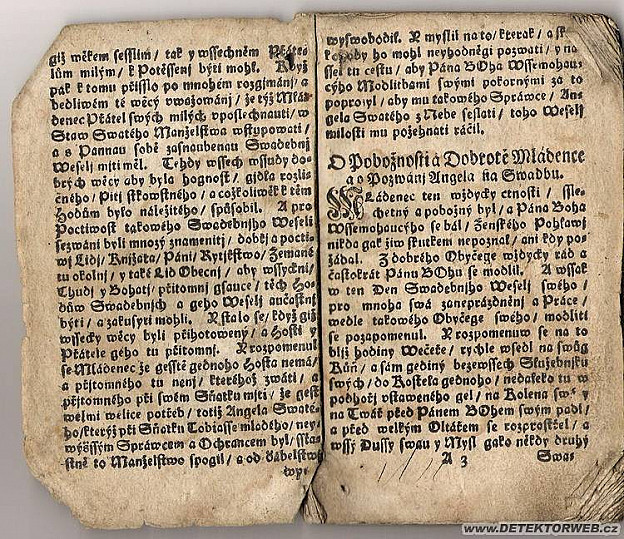 giž wěkem sesslim/ tak y wssechněm Přáte-
lům milým/ k Potěssenj býti mohl. Když
pak k tomu přisslo po mnohém rozgjmánj/ a
bedliwém té wěcy vwažowánj/ že týž Mlá-
denec Přátel swých milých vposlechnauti/ w
Staw Swatého Manželstwa wstupowati/
a s Pannau sobě zasnaubenau Swadebnj
Weselj mjti měl. Tehdy wssech wssudy do-
brých wěcy aby byla hognost/ gjdla rozlič-
ného/ Pitj stkwostného/ a cožkoliwěk k těm
Hodům bylo náležitého/ spůsobil. A pro
Poctiwost takowého Swadebnjho Weselj
sezwáni byli mnozý znamenitj/ dobřj a pocti-
wj Lidj/ Knjžata/ Páni/ Rytjřstwo/ Zemané
tu okolnj/ y také Lid Obecnj/ aby wssyckni/
Chudj y Bohatj/ přjtomnj gsauce/ těch Ho-
dům Swadebnjch a geho Weselj aučastnj
býti/ a zakusyti mohli. Y stalo se/ když giž
wssecky wěcy byli přihotowený/ a Hosti y
Přátelé geho tu přjtomnj. Y rozpomenul
se Mládenec že gesstě gednoho Hosta nemá/
a přjtomného tu nenj/ kteréhož zwáti/ a
přjtomného při swém Sňatku mjti/ že gest
welmi welice potřeb/ totiž Angela Swaté-
ho/ kterýž při Sňatku Tobiasse mladého/ ney-
wyžssým Spráwcem a Ochrancem byl/ sska-
stně to Manželstwo spogil/ a od ďábelstwj
wy-
wyswobodil. Y myslil na to/ kterak/ a s
by ho mohl neyhodněgi pozwati/ y na
ssel tu cestu/ aby Pána BOha Wssemohau-
cýho Modlitbami swými pokornými za to
poprosyl/ aby mu takowého Spráwce/ An-
gela Swatého z Nebe seslati/ toho Weselj
milosti mu požehnati ráčil.
O Pobožnosti a Dobrotě Mládence
a o Pozwánj Angela na Swadbu.
MLádenec ten wždycky ctnostný/ ssle-
chetný a pobožný byl/ a Pána Boha
Wssemohaucýho se bál/ Ženského Pohlawj
nikda gak žiw skutkem nepoznal/ ani kdy po-
žádal. Z dobrého Obyčege wždycky rád a
častokrát Pánu BOhu se modlil. A wssak
w ten Den Swadebnjho Weselj swého/
pro mnohá swá zaneprázdněnj a Práce/
wedle takowého Obyčege swého/ modliti
se pozapomenul. Y rozpomenuw se na to
bljž hodiny Wečeře/ rychle wsedl na swůg
Kůň/ a sám gediný bezewssech Služebnjků
swých/ do Kostela gednoho/ nedaleko tu w
podhořj vstaweného gel/ na Kolena swá y
na Twář před Pánem BOhem swým padl/
a před welkým Oltářem se rozprostřel/ a
wssý Dussý swau y Myslj gako někdy druhý
A 3
Swa-
www.DETEKTORWEB.cz